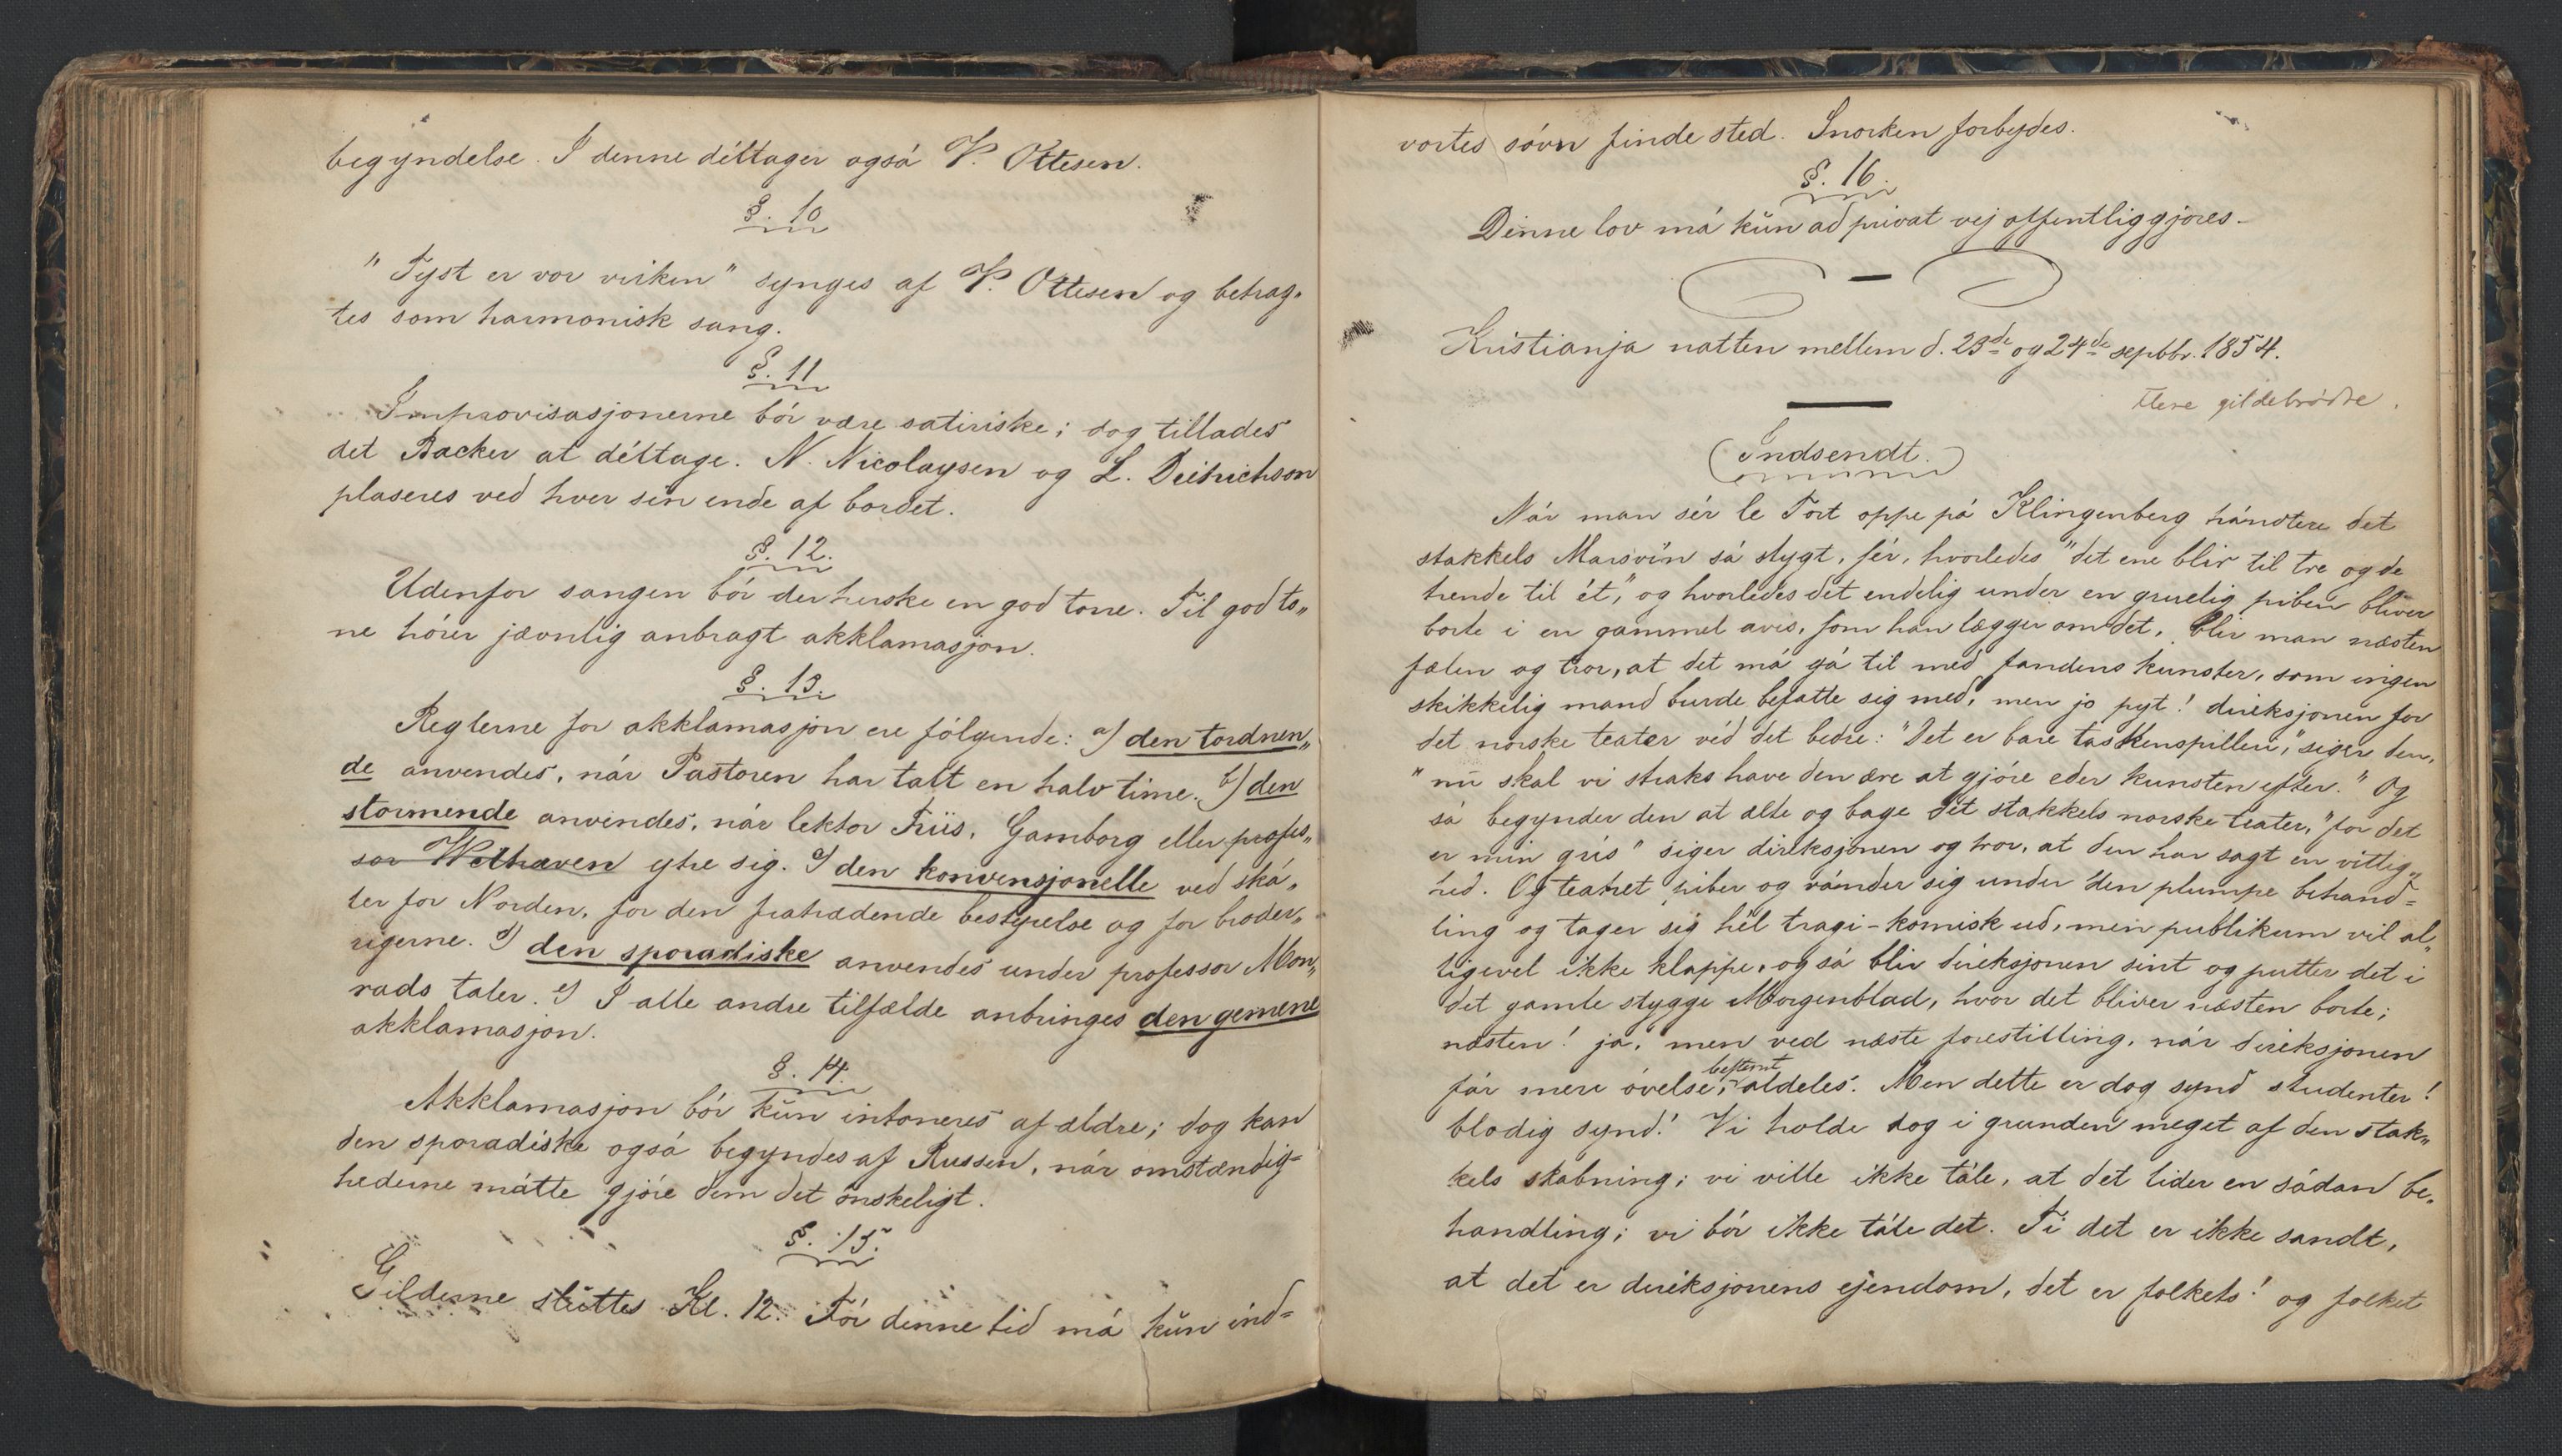 begyndelse. I denne déltager også V. Ottesen.
§. 10
"Tyst er vor virken" synges af V. Ottesen og betrag„
tes som harmonisk sang.
§. 11
Improvisasjonerne bór være satiriske; dog tillades
det Backer at déltage. N. Nicolaysen og L. Deitrichson
plaseres ved hver sin ende af bordet.
§. 12.
Udenfor sangen bór der herske en god tone. Til god to„
ne hórer jævnlig anbragt akklamasjon.
§. 13.
Reglerne for akklamasjon ere fólgende: a) den tordnen„
de anvendes, når Pastoren har talt en halv time. b) den
stormende anvendes, når lektor Friis, Gamborg eller profes„
sor Welhaven ytre sig. c) den konvensjonelle ved skå„
ler for Norden, for den fratrædende bestyrelse og for broder„
rigerne. d) den sporadiske anvendes under professor Mon„
rads taler. e) I alle andre tilfælde anbringes den gemene
akklamasjon.
§. 14.
Akklamasjon bór kŭn intoneres af ældre; dog kan
den sporadiske også begyndes af Russen, når omstændig=
hederne måtte gjóre dem det ónskeligt.
§. 15.
Gilderne sluttes Kl. 12. Fór denne tid må kŭn ind=
vortes sóvn finde sted. Snorken forbydes.
§. 16.
Denne lov må kŭn ad privat vej offentliggjores.
Kristianja natten mellem d. 23de og 24de septbr. 1854.
flere gildebrødre.
(Indsendt.)
Når man sér le Tort oppe på Klingenberg håndtere det
stakkels Marsvin så stygt, sér, hvorledes "det ene blir til tre og de
trende til ét," og hvorledes det endelig under en gruelig piben bliver
borte i en gammel avis, som han lægger om det, blir man næsten
fælen og tror, at det må gå til med fandens kunster, som ingen
skikkelig mand burde befatte sig med, men jo pyt! direksjonen for
det norske teater véd det bedre: "Det er bare taskenspilleri," siger den,
"nŭ skal vi straks have den ære at gjóre eder kunsten efter." Og
så begynder den at ælte og bage det stakkels norske teater, "for det
er min gris" siger direksjonen og tror, at den har sagt en vittig„
hed. Og teatret piber og vånder sig under den plumpe behand=
ling og tager sig hél tragi-komisk ud, men publikum vil al„
ligevel ikke klappe, og så blir direksjonen sint og putter det i
det gamle stygge Morgenblad, hvor det bliver næsten borte;
næsten! ja, men ved næste forestilling, når direksjonen
får mere óvelse, bestemt aldeles. Men dette er dog synd studenter!
blodig synd! Vi holde dog i grunden meget af den stak„
kels skabning; vi ville ikke tåle, at det lider en sådan be„
handling; vi bór ikke tåle det. Ti det er ikke sandt,
at det er direksjonens ejendom, det er folkets! og folket